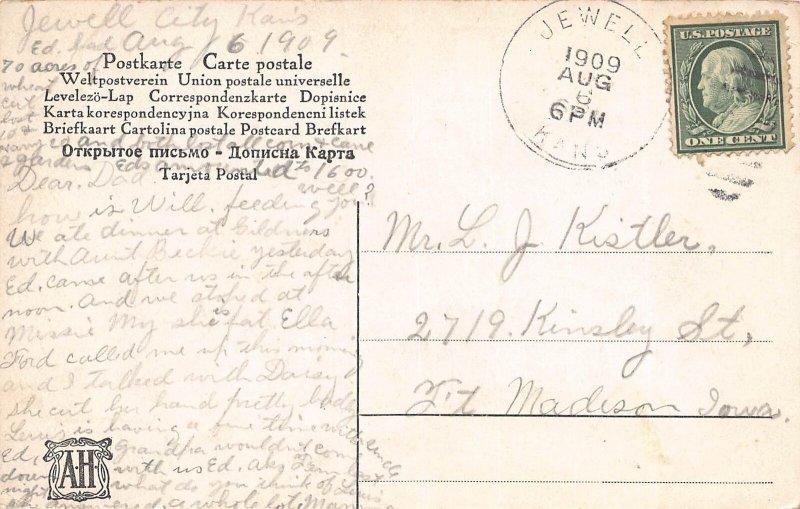 Jewell City Kans
Aug 6 1909.
Ed. had
70 acres of
wheat
cut
lost
Postkarte Carte postale
Weltpostverein Union postale universelle
Levelezö-Lap Correspondenzkarte Dopisnice
Karta korespondencyjna Korespondencni listek
Briefkaart Cartolina postale Postcard Brefkart
Открытое письмо - Дописна Карта
Tarjeta Postal
& garden Eds to 1600.
Dear Dad well?
how is Will. feeding you?
We ate dinner at Gildners
with Aunt Beckie yesterday
Ed. came after us in the after
noon. And we stoped at
Missie My she is fat. Ella
Ford called me up this morning
and I talked with Daisy
she cut her hand pretty badly
Lewis is having a fine time with uncle
Ed, Grandpa wouldn't come
down with us Ed. last
night what do you think of
answered. a whole lot
A·H
JEWELL
1909
AUG
6
6 PM
KANS
U.S. POSTAGE
ONE CENT
Mr. L. J. Kistler,
2719. Kinsley St,
Ft Madison Iowa.